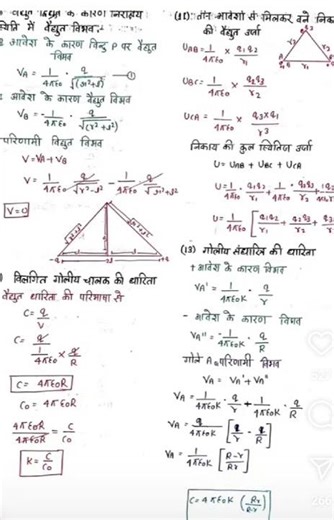 के कारण निरक्षीय
स्थिति में वैद्युत विभव:
आवेश के कारण बिन्दु P पर वैद्युत
विभव
VA = 1/4πε0 · q/√(r²+l²) — ①
आवेश के कारण वैद्युत विभव
VB = -1/4πε0 · q/√(r²+l²)
परिणामी विद्युत विभव
V = VA + VB
V = 1/4πε0 q/√r²+l² - 1/4πε0 q/√r²+l²
V=0
विलगित गोलीय चालक की धारिता
वैद्युत धारिता की परिभाषा से
C = q/V
C = q/(1/4πε0 × q/R)
C = 4πε0R
C0 = 4πε0R
4πε0R/4πε0R = C/C0
K = C/C0
तीन आवेशों से मिलकर बने निकाय
की वैद्युत ऊर्जा
UAB = 1/4πε0 × q1q2/r1
UBC = 1/4πε0 × q2q3/r2
UCA = 1/4πε0 × q3×q1/r3
निकाय की कुल स्थितिज ऊर्जा
U = UAB + UBC + UCA
U = 1/4πε0 · q1q2/r1 + 1/4πε0 · q2q3/r2 +
U = 1/4πε0 [q1q2/r1 + q2q3/r2 +
(13) गोलीय संधारित्र की धारिता
+ आवेश के कारण विभव
VA' = 1/4πε0K · q/r
- आवेश के कारण विभव
VA'' = -1/4πε0K · q/R
गोले A परिणामी विभव
VA = VA' + VA''
VA = 1/4πε0K · q/r + 1/4πε0K · q/R
VA = q/4πε0K [q/r - q/R]
VA = 1/4πε0K [R-r/Rr]
C = 4πε0K (Rr/R-r)